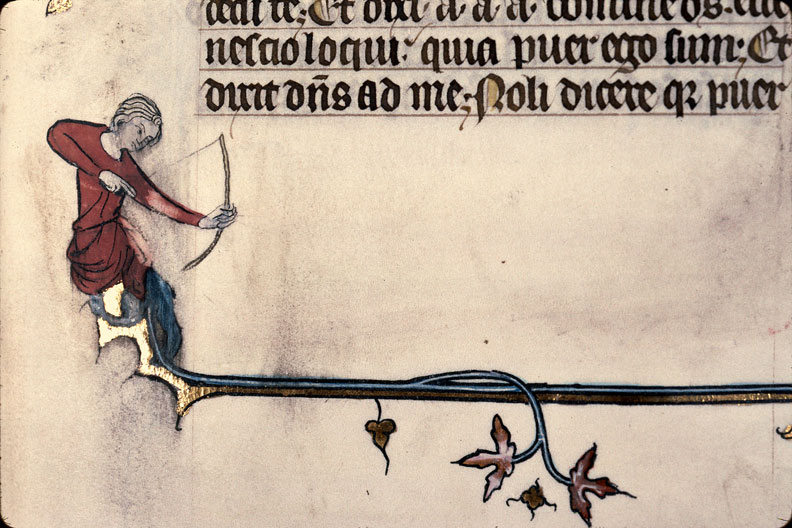 dedi te; Et dixi a a a domine ds. ecce
nescio loqui: quia puer ego sum; Et
dixit dñs ad me; Noli dicere qz puer